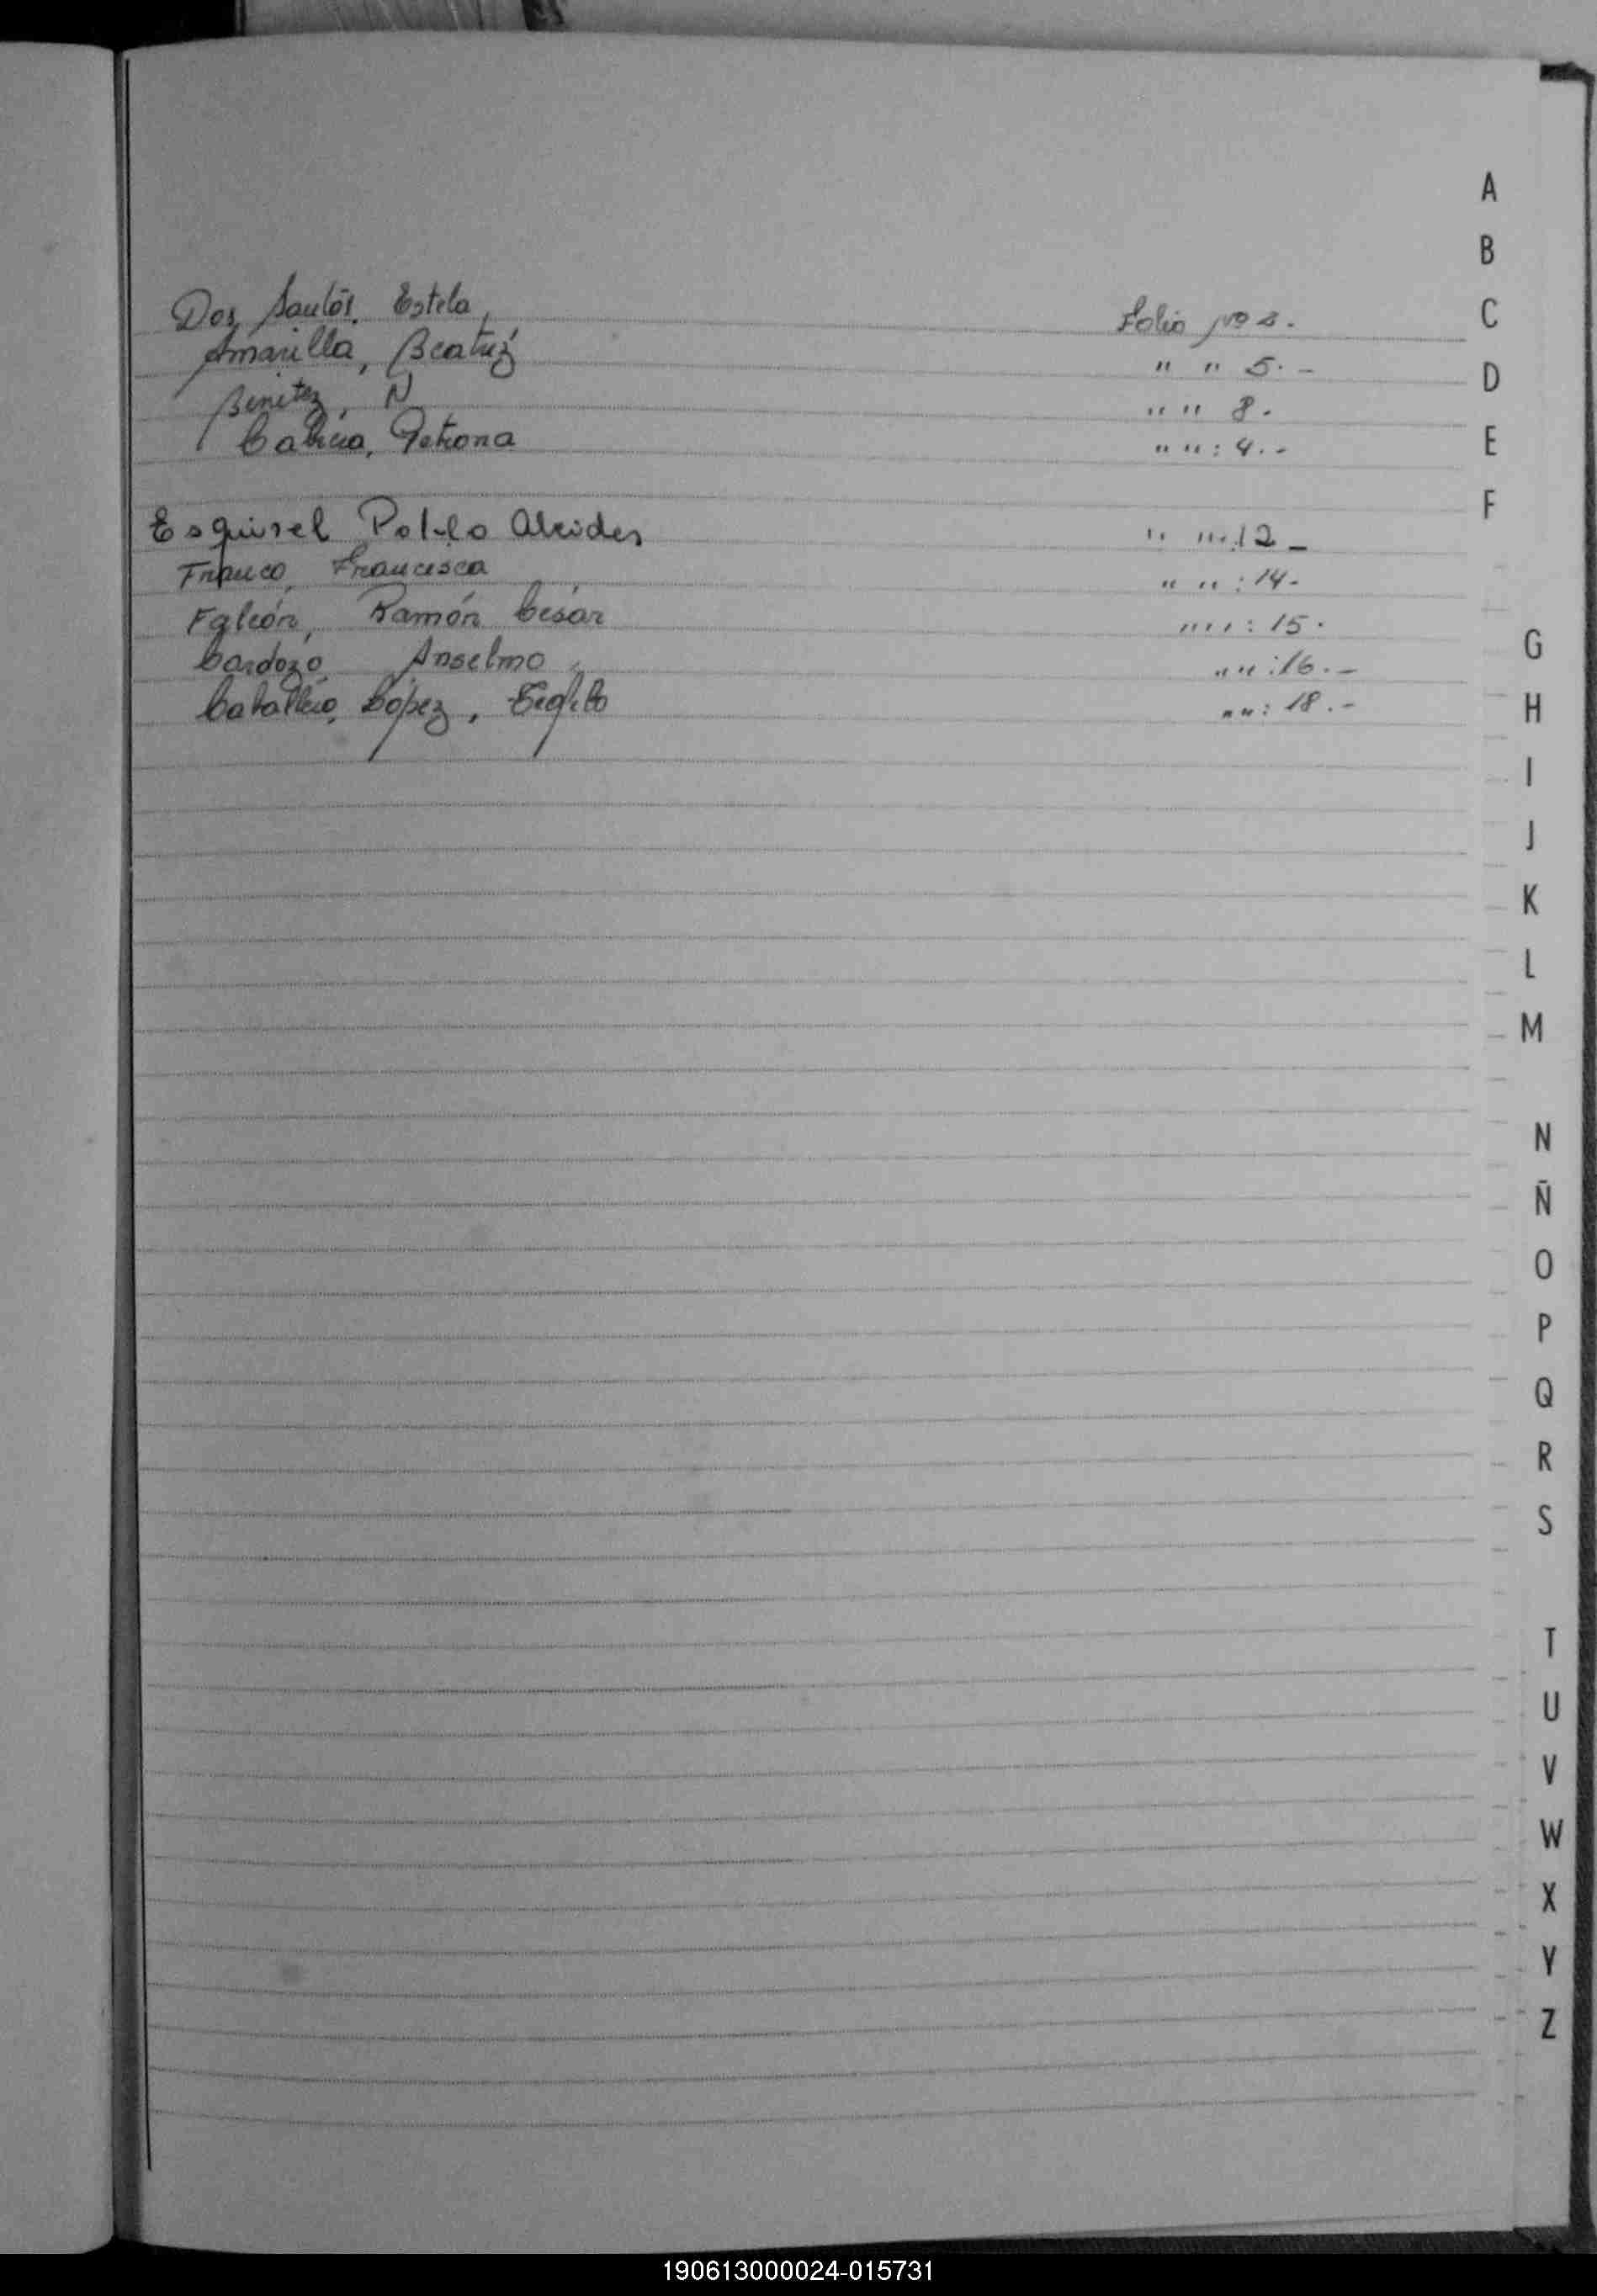 A
B
C
D
E
F
G
H
I
J
K
L
M
N
Ñ
O
P
Q
R
S
T
U
V
W
X
Y
Z
Dos Santos, Estela, Folio Nº
Amarilla, Beatriz " " 5.-
Benitez, N " " 8.
Petrona " " : 4.-
Esquivel Pablo Alcides " " 12_
Franco, Francisca " " : 14-
Falcón, Ramón César " " : 15.
Cardozo Anselmo " " : 16.-
Caballero, López, " " : 18.-
190613000024-015731